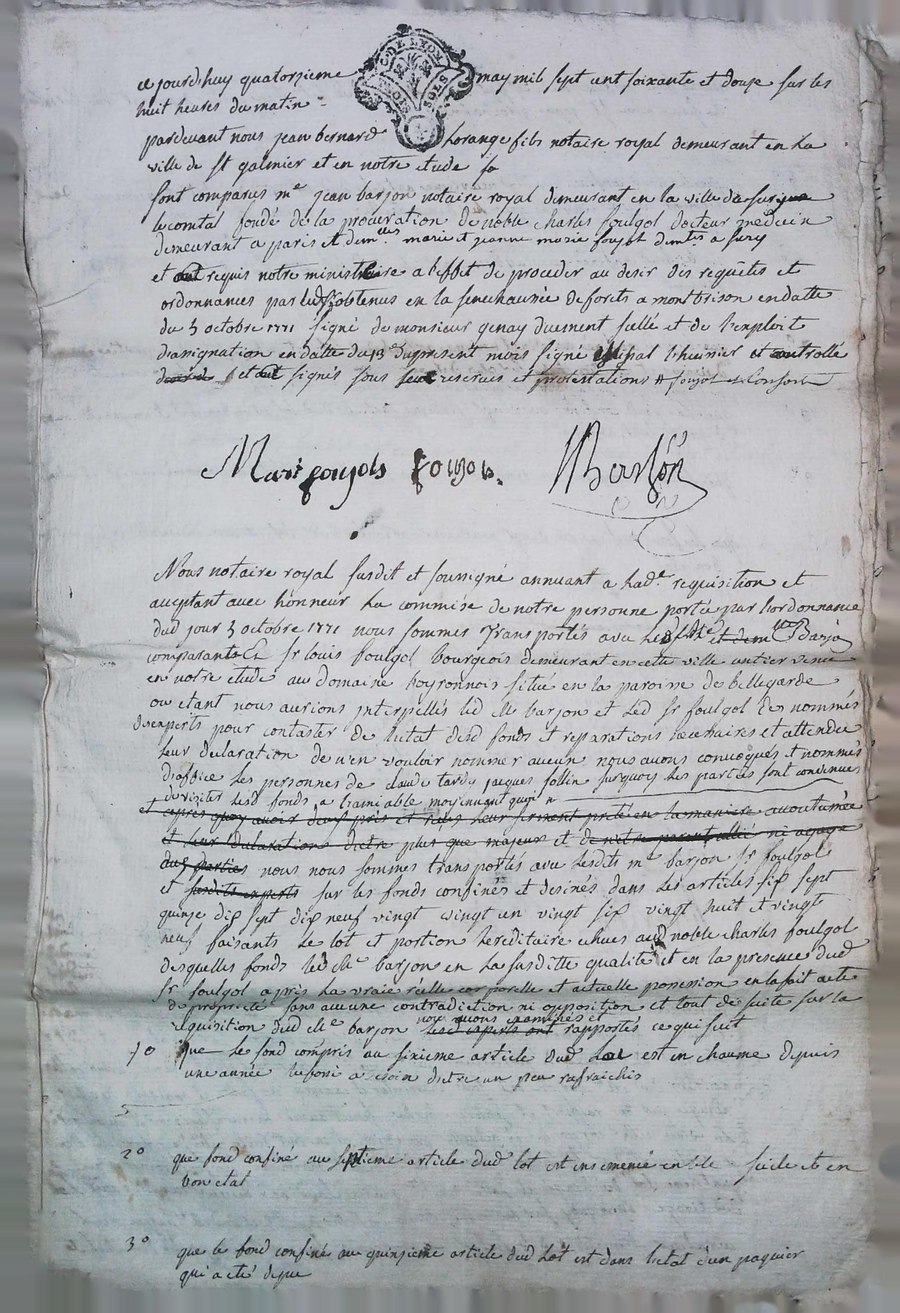 ce jourdhuy quatorzieme may mil sept cent soixante et douze sur les
huit heures du matin
G. DE LYON
SOLS
pardevant nous jean bernard horange fils notaire royal demeurant en la
ville de st galmier et en notre etude
sont comparus me jean barjon notaire royal demeurant en la ville de sury
le comtal fondé de la procuration de noble charles foulgol docteur medecin
demeurant a paris et demlles marie et jeanne marie foujol demtes a sury
et ont requis notre ministere a leffet de proceder au desir des requêtes et
ordonnances par obtenus en la senechaussée de forets a montbrison en datte
du 3 octobre 1771 signé de monsieur duement sellé et de lexploit
dassignation en datte du 13e du present mois signé lhuinier et controllé
et ont signés sous reserves et protestations foujol et Consort
Marie foujols foujol Barjon
Nous notaire royal susdit et soussigné annuant a lade requisition et
acceptant avec honneur la commise de notre personne portée par lordonnance
dud jour 3 octobre 1771 nous sommes transportés avec et dem Barjon
comparants et Sr louis foulgol Bourgeois demeurant en cette ville
en notre etude au domaine boyronnois situé en la paroisse de bellegarde
ou etant nous aurions interpellés led Me barjon et led sr foulgol de nommés
des experts pour contaster de letat desd fonds et reparations necessaires et attendu
leur declaration de n'en vouloir nommer aucun nous avons convoqués et nommés
d'office les personnes de claude tardy jacques follin surquoy les parties sont convenues
de visiter lesd fonds a lamiable moyennant quoi
et après quoy avoir deux pris et reçus leur serment prêté en la maniere accoutumée
et leur declarations d'etre plus que majeurs et de
aux parties nous nous sommes transportés avec lesdits me barjon sr foulgol
et susdits experts sur les fonds confinés et désinés dans les articles six sept
quinze dix sept dix neuf vingt vingt un vingt six vingt huit et vingt
neuf faisants le lot et portion hereditaire echues aud noble charles foulgol
desquelles fonds led Me barjon en la susditte qualité et en la presence dud
sr foulgol a près la vraie réelle corporelle et actuelle possession en la fait acte
de propriété sans aucune contradiction ni opposition et tout de suite sur la
requisition dud Me barjon nous avons examinés et lesd experts ont rapportés ce qui suit
1o que le fond compris au sixieme article dud lot est en chaume depuis
une année le fossé a besoin d'etre un peu rafraichis
2o que fond confiné au septieme article dud lot est ensemencé en blé seicle et en
bon etat
3o que le fond confiné au quinzieme article dud lot est dans letat d'un paquier
qui a été